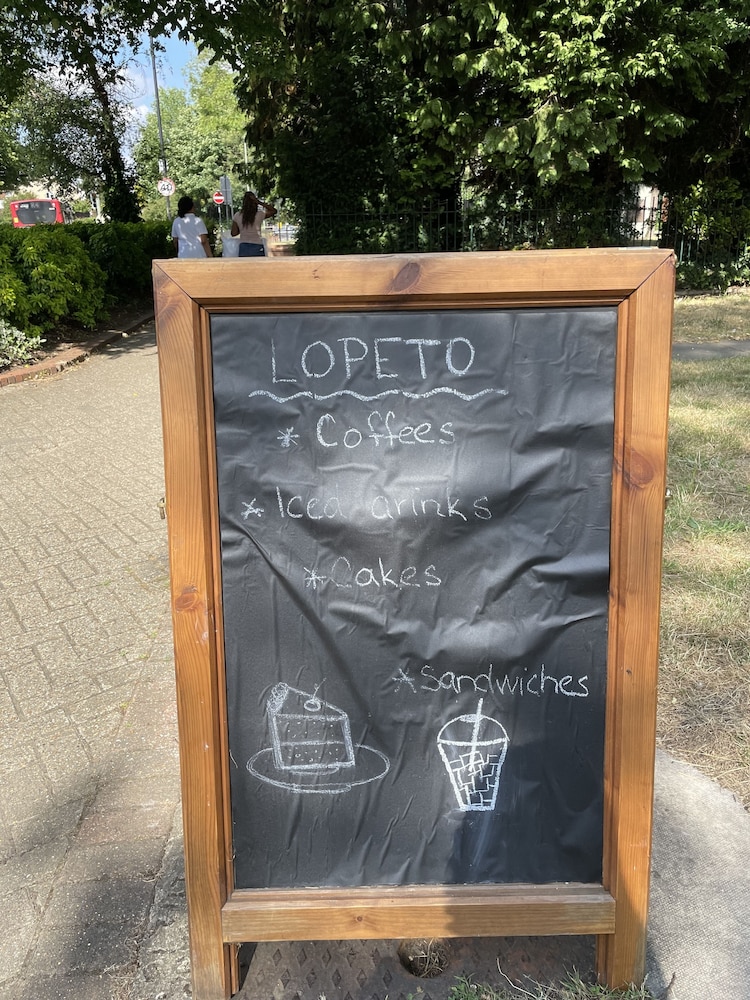 40
LOPETO
* Coffees
* Iced drinks
* Cakes
* Sandwiches